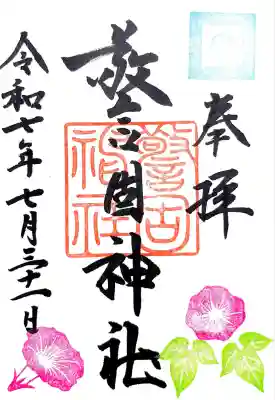 奉拝
警固神社
警固
神社
令和七年七月三十一日